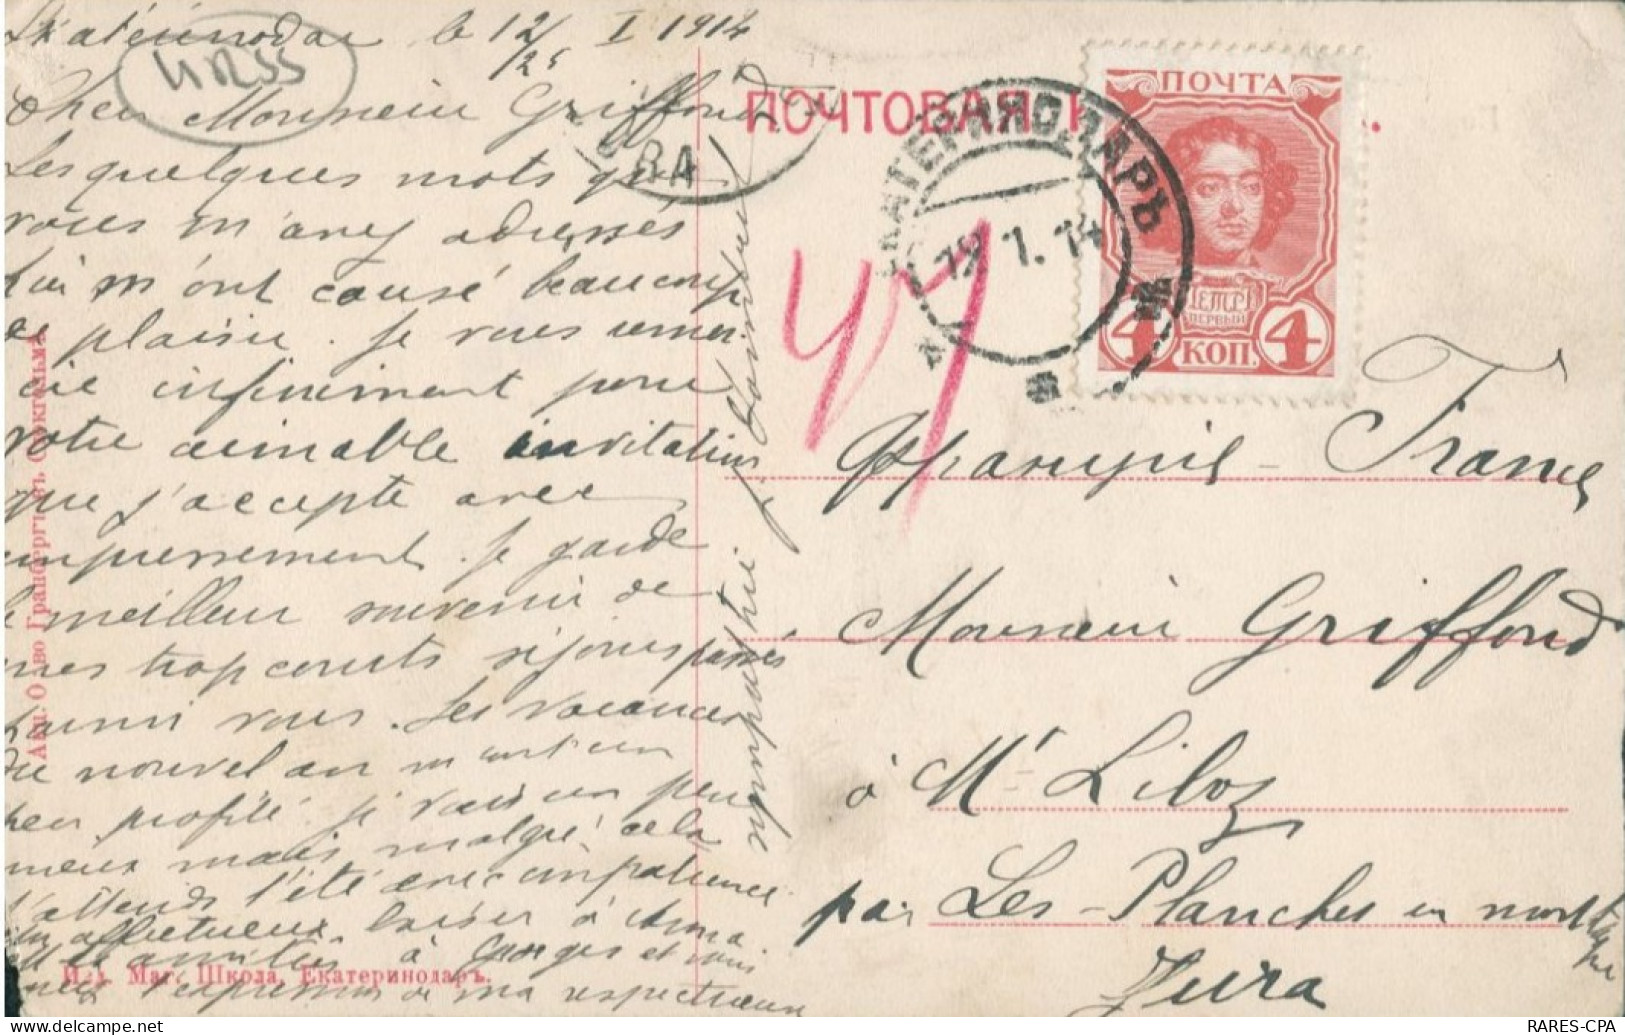 Ekatérinodar le 12/25 I 1914
URSS
Cher Monsieur Griffond,
Les quelques mots que
vous m'avez adressés
lui m'ont causé beaucoup
de plaisir. Je vous remer-
cie infiniment pour
votre aimable invitation
que j'accepte avec
empressement. Je garde
le meilleur souvenir de
mes trop courts séjours passés
parmi vous. Les vacances
du nouvel an m'ont un
peu profité je vais un peu
mieux mais malgré cela
j'attends l'été avec impatience.
affectueux baiser à Anna.
amitiés à Georges et vous
l'expression de ma respectueuse
sympathie
ПОЧТОВАЯ К
ПОЧТА
ПЕТРЪ I
ПЕРВЫЙ
4 КОП. 4
ЕКАТЕРИНОДАРЪ
19 1. 14
RA
47
Франция - France
Monsieur Griffond
à Mr Liloz
par Les-Planches en mont[agne]
Jura
Акц. О-во Гранбергъ въ Стокгольмѣ
Изд. Маг. Школа, Екатеринодаръ.
RARES-CPA